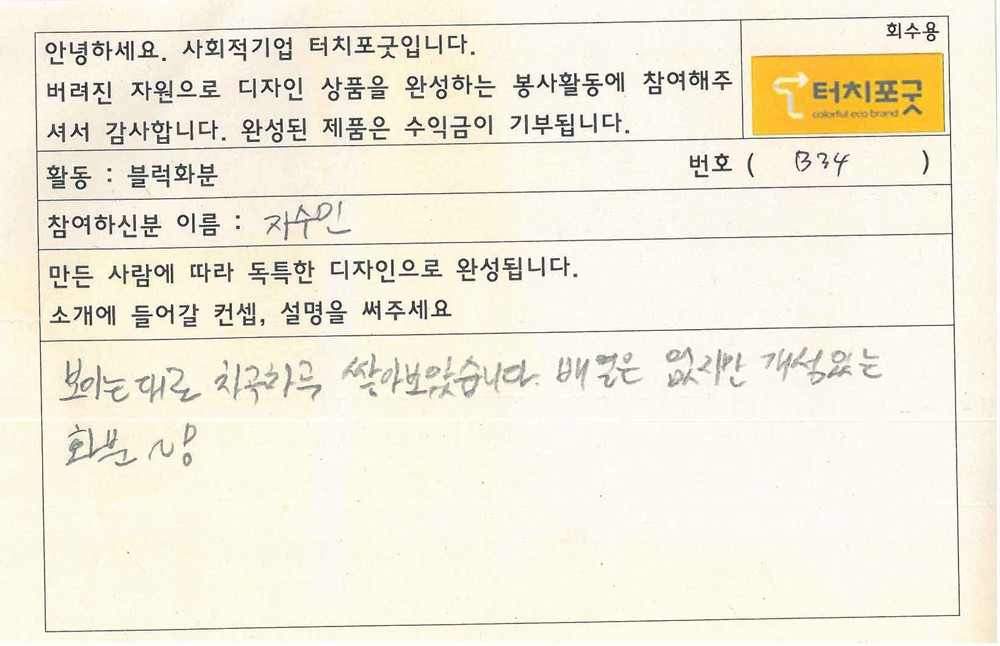 회수용
안녕하세요. 사회적기업 터치포굿입니다.
버려진 자원으로 디자인 상품을 완성하는 봉사활동에 참여해주
셔서 감사합니다. 완성된 제품은 수익금이 기부됩니다.
터치포굿
colorful eco brand
활동 : 블럭화분
번호 ( B34 )
참여하신분 이름 : 자수민
만든 사람에 따라 독특한 디자인으로 완성됩니다.
소개에 들어갈 컨셉, 설명을 써주세요
보이는대로 차곡차곡 쌓아보았습니다. 배열은 없지만 개성있는
화분